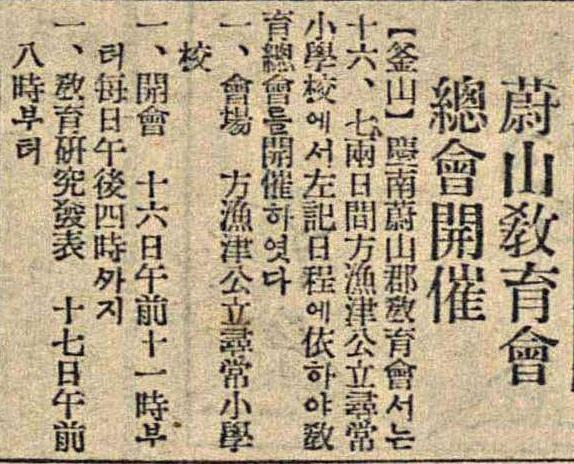 蔚山敎育會
總會開催
【釜山】慶南蔚山郡敎育會서는
十六、七兩日間方漁津公立尋常
小學校에서左記日程에依하야敎
育總會를開催하엿다
一、會場　方漁津公立尋常小學
校
一、開會　十六日午前十一時부
터每日午後四時ᄭᅡ지
一、敎育硏究發表　十七日午前
八時부터